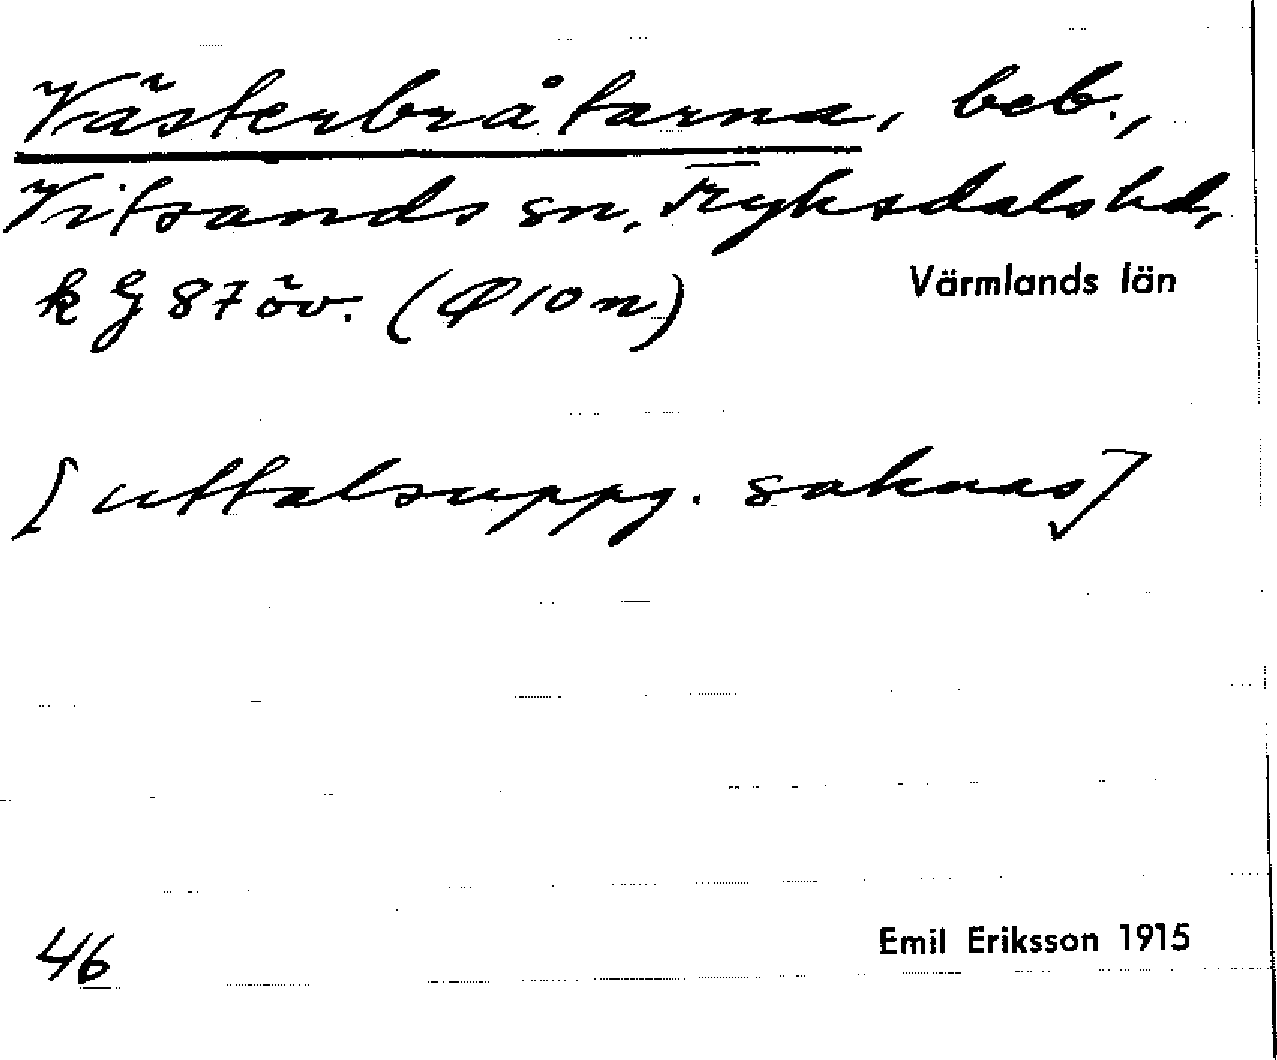 Västerbråtarna, beb.,
Vitsands sn, Fryksdals hd,
k G 87 öv. (Ø 10 n)
Värmlands län
[uttalsuppg. saknas]
46
Emil Eriksson 1915